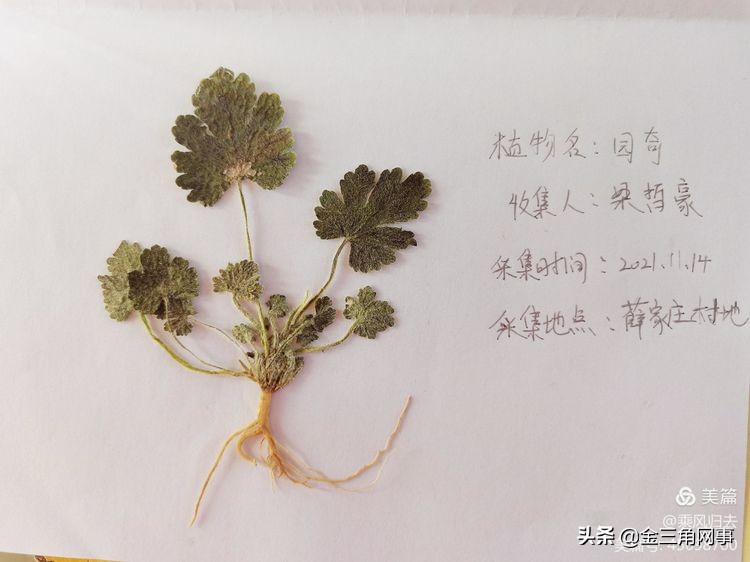 植物名：园奇
收集人：梁哲豪
采集时间：2021.11.14
采集地点：薛家庄村地
美篇
@乘风归去
头条 @金三角网事